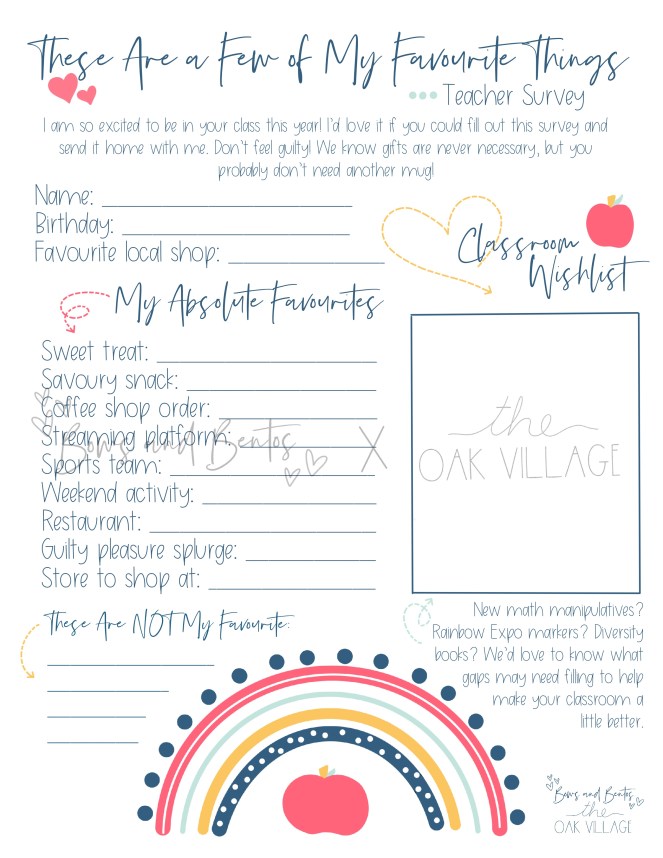 These Are a Few of My Favourite Things
Teacher Survey
I am so excited to be in your class this year! I'd love it if you could fill out this survey and
send it home with me. Don't feel guilty! We know gifts are never necessary, but you
probably don't need another mug!
Name:
Birthday:
Favourite local shop:
Classroom
Wishlist
My Absolute Favourites
Sweet treat:
Savoury snack:
Coffee shop order:
Streaming platform:
Sports team:
Weekend activity:
Restaurant:
Guilty pleasure splurge:
Store to shop at:
Bows and Bentos X
the
OAK VILLAGE
These Are NOT My Favourite:
New math manipulatives?
Rainbow Expo markers? Diversity
books? We'd love to know what
gaps may need filling to help
make your classroom a
little better.
Bows and Bentos
the
OAK VILLAGE